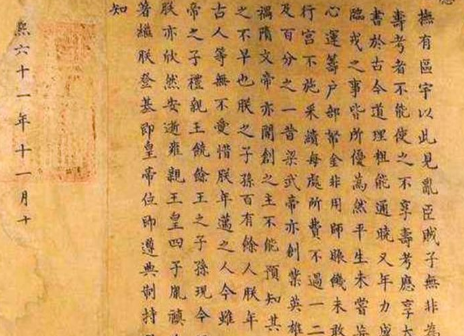 撫有區宇以此見亂臣賊子無非為
壽考者不能使之不享壽考應享太
書於古今道理粗能通曉又年力盛
臨戎之事皆所優為然平生未嘗妄
心運籌戶部帑金非用師賑饑未敢
行宮不施采繢每處所費不過一二
及百分之一昔梁武帝亦創業英雄
禍隋文帝亦開創之主不能預知其
之不早也朕之子孫百有餘人朕年
古人等無不愛惜朕年邁之人今雖
帝之子禮親王饒餘王之子孫現今
朕亦欣然安逝雍親王皇四子胤禛
著繼朕登基即皇帝位即遵典制持
知
熙六十一年十一月十